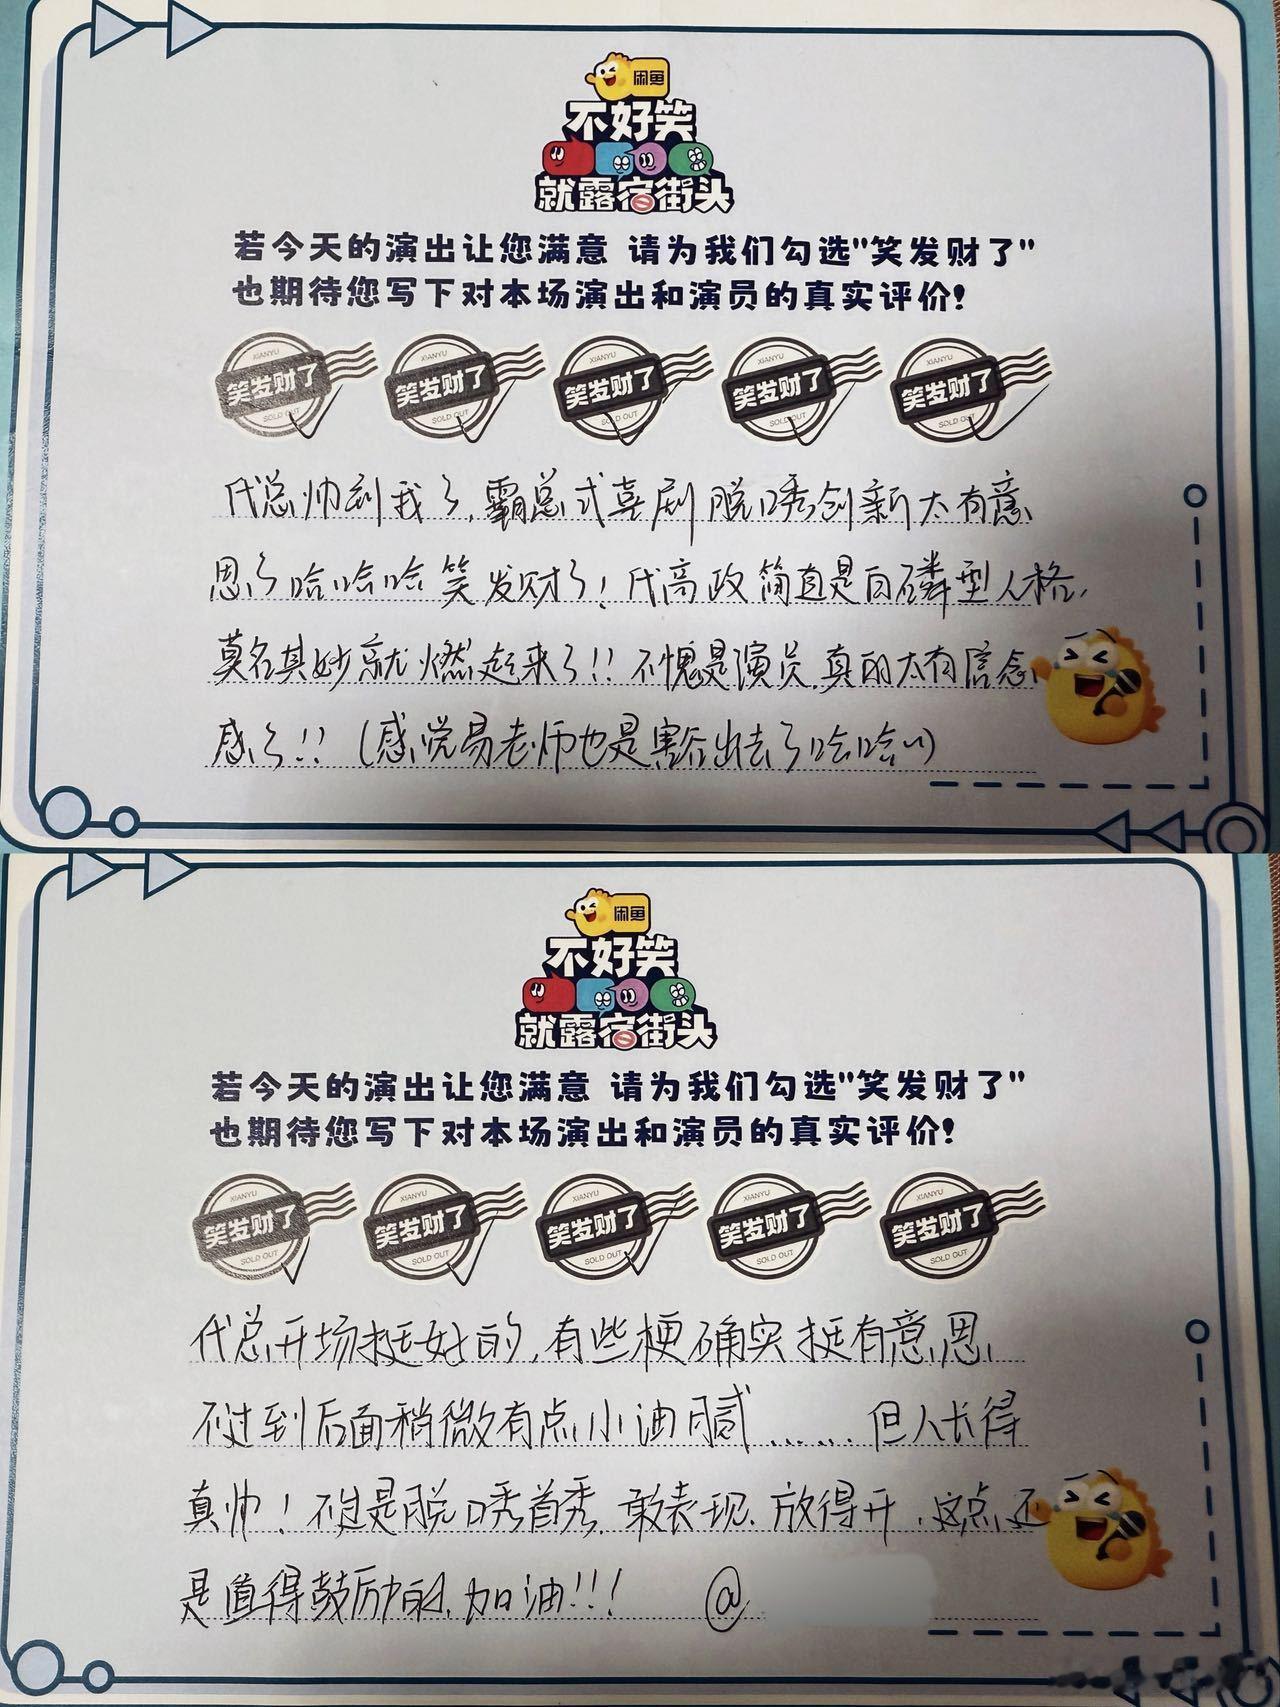 闲鱼
不好笑
就露宿街头
若今天的演出让您满意 请为我们勾选"笑发财了"
也期待您写下对本场演出和演员的真实评价!
XIANYU XIANYU XIANYU XIANYU XIANYU
笑发财了 笑发财了 笑发财了 笑发财了 笑发财了
SOLD OUT SOLD OUT SOLD OUT SOLD OUT SOLD OUT
代总帅到我了,霸总式喜剧脱口秀创新太有意
思了哈哈哈笑发财了!代高政简直是白磷型人格,
莫名其妙就燃起来了!!不愧是演员,真的太有信念
感了!!(感觉易老师也是豁出去了哈哈)
闲鱼
不好笑
就露宿街头
若今天的演出让您满意 请为我们勾选"笑发财了"
也期待您写下对本场演出和演员的真实评价!
XIANYU XIANYU XIANYU XIANYU XIANYU
笑发财了 笑发财了 笑发财了 笑发财了 笑发财了
SOLD OUT SOLD OUT SOLD OUT SOLD OUT SOLD OUT
代总开场挺好的,有些梗确实挺有意思,
不过到后面稍微有点小油腻……但人长得
真帅!不过是脱口秀首秀,敢表现,放得开,这点还
是值得鼓励的,加油!!! @